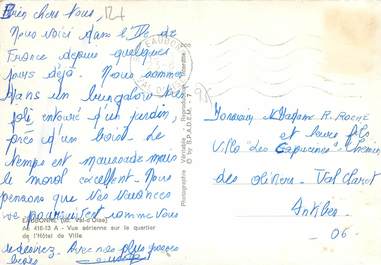 Bien chers tous,
Nous voici dans l'Ile de
France depuis quelques
jours déjà. Nous sommes
dans un bungalow très
joli, entouré d'un jardin,
près d'un bois. Le
temps est maussade mais
le moral excellent. Nous
pensons que vos vacances
se poursuivent comme vous
le désirez. Avec nos plus grosses
bises
EAUBONNE (95. Val-d'Oise)
AE 416-13 A - Vue aérienne sur le quartier
de l'Hôtel de Ville
Photographie Véritable - Reproduction Interdite
© by S.P.A.D.E.M.
EAUBONNE
Monsieur & Madame R. ROCHE
et leurs fils
Villa "Les Capucines" Chemin
des Oliviers. Val Claret
Antibes
- 06 -